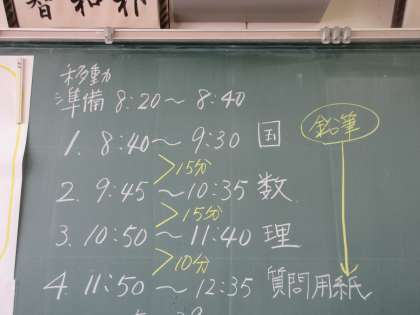 智和
移動
準備 8:20〜8:40
1. 8:40〜9:30 国
>15分
2. 9:45〜10:35 数
>15分
3. 10:50〜11:40 理
>10分
4. 11:50〜12:35 質問用紙
鉛筆